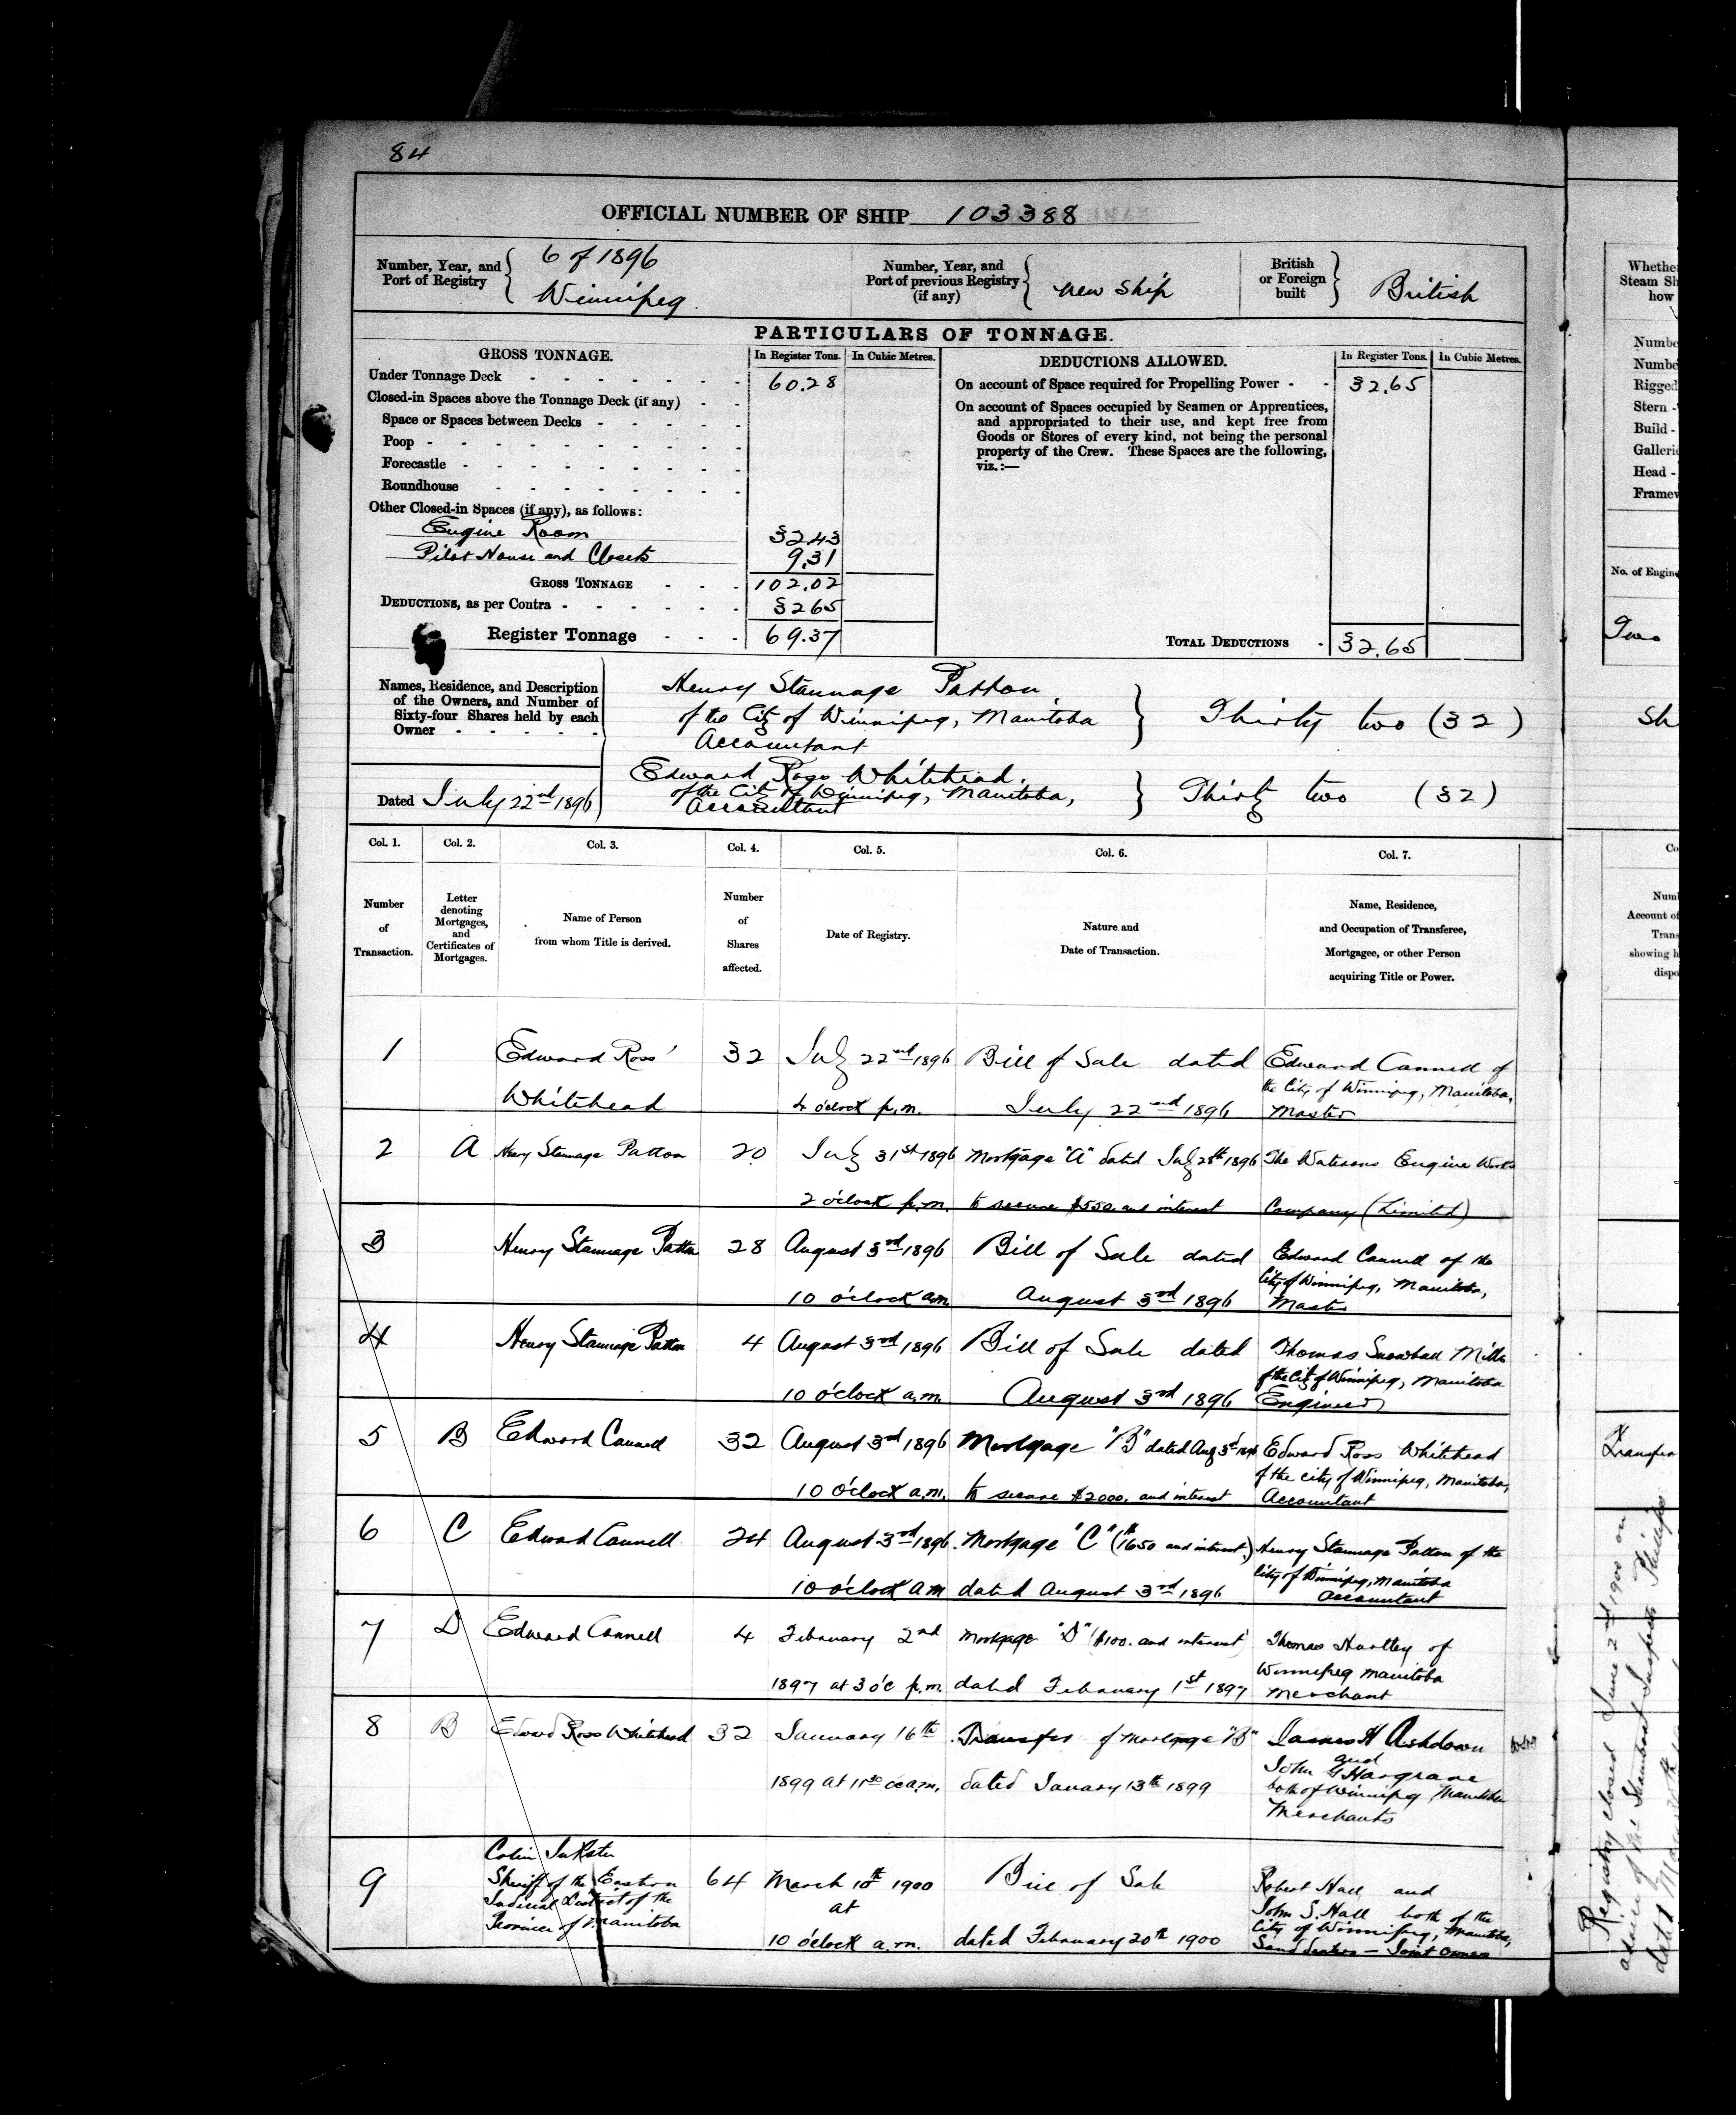 84
OFFICIAL NUMBER OF SHIP 103388
Number, Year, and Port of Registry
6 of 1896
Winnipeg
Number, Year, and Port of previous Registry (if any)
New Ship
British or Foreign built
British
PARTICULARS OF TONNAGE.
GROSS TONNAGE.
In Register Tons.
In Cubic Metres.
DEDUCTIONS ALLOWED.
In Register Tons.
In Cubic Metres.
Under Tonnage Deck - 60.28
On account of Space required for Propelling Power - - 32.65
Closed-in Spaces above the Tonnage Deck (if any) - -
Space or Spaces between Decks -
Poop -
Forecastle -
Roundhouse -
Other Closed-in Spaces (if any), as follows:
On account of Spaces occupied by Seamen or Apprentices,
and appropriated to their use, and kept free from
Goods or Stores of every kind, not being the personal
property of the Crew. These Spaces are the following,
viz.:—
Engine Room 32.43
Pilot House and Closets 9.31
GROSS TONNAGE - - - 102.02
DEDUCTIONS, as per Contra - 32 65
Register Tonnage - - - 69.37
TOTAL DEDUCTIONS - 32.65
Names, Residence, and Description
of the Owners, and Number of
Sixty-four Shares held by each
Owner - - - - -
Henry Stannage Patton,
of the City of Winnipeg, Manitoba
Accountant
Thirty two (32)
Dated July 22nd 1896
Edward Ross Whitehead.
of the City of Winnipeg, Manitoba,
Accountant
Thirty two (32)
Col. 1.
Col. 2.
Col. 3.
Col. 4.
Col. 5.
Col. 6.
Col. 7.
Number
of
Transaction.
Letter
denoting
Mortgages,
and
Certificates of
Mortgages.
Name of Person
from whom Title is derived.
Number
of
Shares
affected.
Date of Registry.
Nature and
Date of Transaction.
Name, Residence,
and Occupation of Transferee,
Mortgagee, or other Person
acquiring Title or Power.
1
Edward Ross
Whitehead
32
July 22nd 1896
4 o'clock p.m.
Bill of Sale dated
July 22nd 1896
Edward Cannell of
the City of Winnipeg, Manitoba,
Master
2
A
Henry Stannage Patton
20
July 31st 1896
2 o'clock p.m.
Mortgage "A" dated July 28th 1896
to secure $550. and interest
The Waterous Engine Works
Company (Limited)
3
Henry Stannage Patton
28
August 3rd 1896
10 o'clock a.m.
Bill of Sale dated
August 3rd 1896
Edward Cannell of the
City of Winnipeg, Manitoba,
Master
4
Henry Stannage Patton
4
August 3rd 1896
10 o'clock a.m.
Bill of Sale dated
August 3rd 1896
Thomas Snowball Mills
of the City of Winnipeg, Manitoba
Engineer
5
B
Edward Cannell
32
August 3rd 1896
10 o'clock a.m.
Mortgage "B" dated Aug 3rd 1896
to secure $2000. and interest
Edward Ross Whitehead
of the City of Winnipeg, Manitoba,
Accountant
6
C
Edward Cannell
24
August 3rd 1896.
10 o'clock a m
Mortgage "C" ($1650 and interest.)
dated August 3rd 1896
Henry Stannage Patton of the
City of Winnipeg, Manitoba
Accountant
7
D
Edward Cannell
4
February 2nd
1897 at 3 o'c p.m.
Mortgage "D" ($100. and interest)
dated February 1st 1897
Thomas Hartley of
Winnipeg Manitoba
Merchant
8
B
Edward Ross Whitehead
32
January 16th
1899 at 11 30 oc a.m.
Transfer of Mortgage "B"
dated January 13th 1899
James H Ashdown
and
John G Hargrave
both of Winnipeg, Manitoba
Merchants
9
Colin Inkster
Sheriff of the Eastern
Judicial District of the
Province of Manitoba
64
March 10th 1900
at
10 o'clock a.m.
Bill of Sale
dated February 20th 1900
Robert Hall and
John S. Hall both of the
City of Winnipeg, Manitoba,
Joint Owners
Whether
Steam Sh
how
Numbe
Numbe
Rigged
Stern -
Build -
Galleri
Head -
Framew
No. of Engin
Two
Sh
Co
Numb
Account of
Trans
showing h
dispo
Transfer
Registry closed June 2nd 1900 on
advice of the Steamboat Inspector Phillips